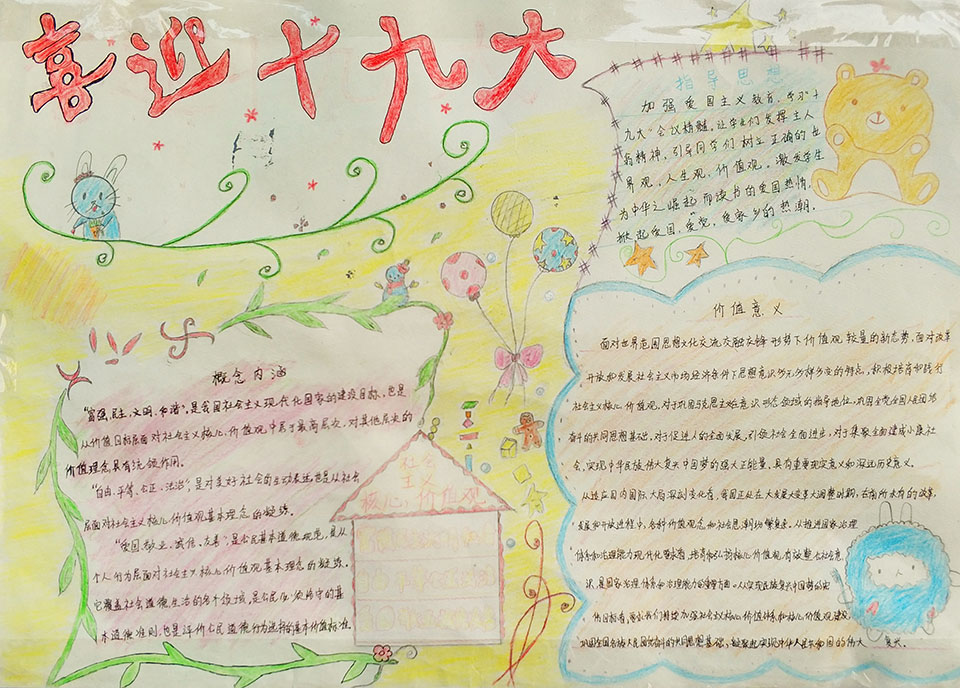 喜迎十九大
指导思想
加强爱国主义教育，学习"十
九大"会议精髓，让学生们发挥主人
翁精神，引导同学们树立正确的世
界观，人生观，价值观，激发学生
为中华之崛起而读书的爱国热情，
掀起爱国，爱党，爱家乡的热潮。
概念内涵
"富强、民主、文明、和谐"，是我国社会主义现代化国家的建设目标，也是
从价值目标层面对社会主义核心价值观中居于最高层次，对其他层次的
价值理念具有统领作用。
"自由、平等、公正、法治"，是对美好社会的生动表述也是从社会
层面对社会主义核心价值观基本理念的凝练。
"爱国、敬业、诚信、友善"，是公民基本道德规范，是从
个人行为层面对社会主义核心价值观基本理念的凝练。
它覆盖社会道德生活的各个领域，是公民必须恪守的基
本道德准则，也是评价公民道德行为选择的基本价值标准
社会
主义
核心价值观
价值意义
面对世界范围思想文化交流交融交锋形势下价值观较量的新态势，面对改革
开放和发展社会主义市场经济条件下思想意识多元多样多变的特点，积极培育和践行
社会主义核心价值观，对于巩固马克思主义在意识形态领域的指导地位，巩固全党全国人民团结
奋斗的共同思想基础，对于促进人的全面发展，引领社会全面进步，对于集聚全面建成小康社
会，实现中华民族伟大复兴中国梦的强大正能量，具有重要现实意义和深远历史意义。
从适应国内国际大局深刻变化看，我国正处在大发展大变革大调整时期，在前所未有的改革、
发展和开放进程中，各种价值观念和社会思潮纷繁复杂。从推进国家治理
体系和治理能力现代化要求看，培育和弘扬核心价值观，有效整合社会意
识，是国家治理体系和治理能力的重要方面。从实现民族复兴中国梦的宏
伟目标看，
复兴。